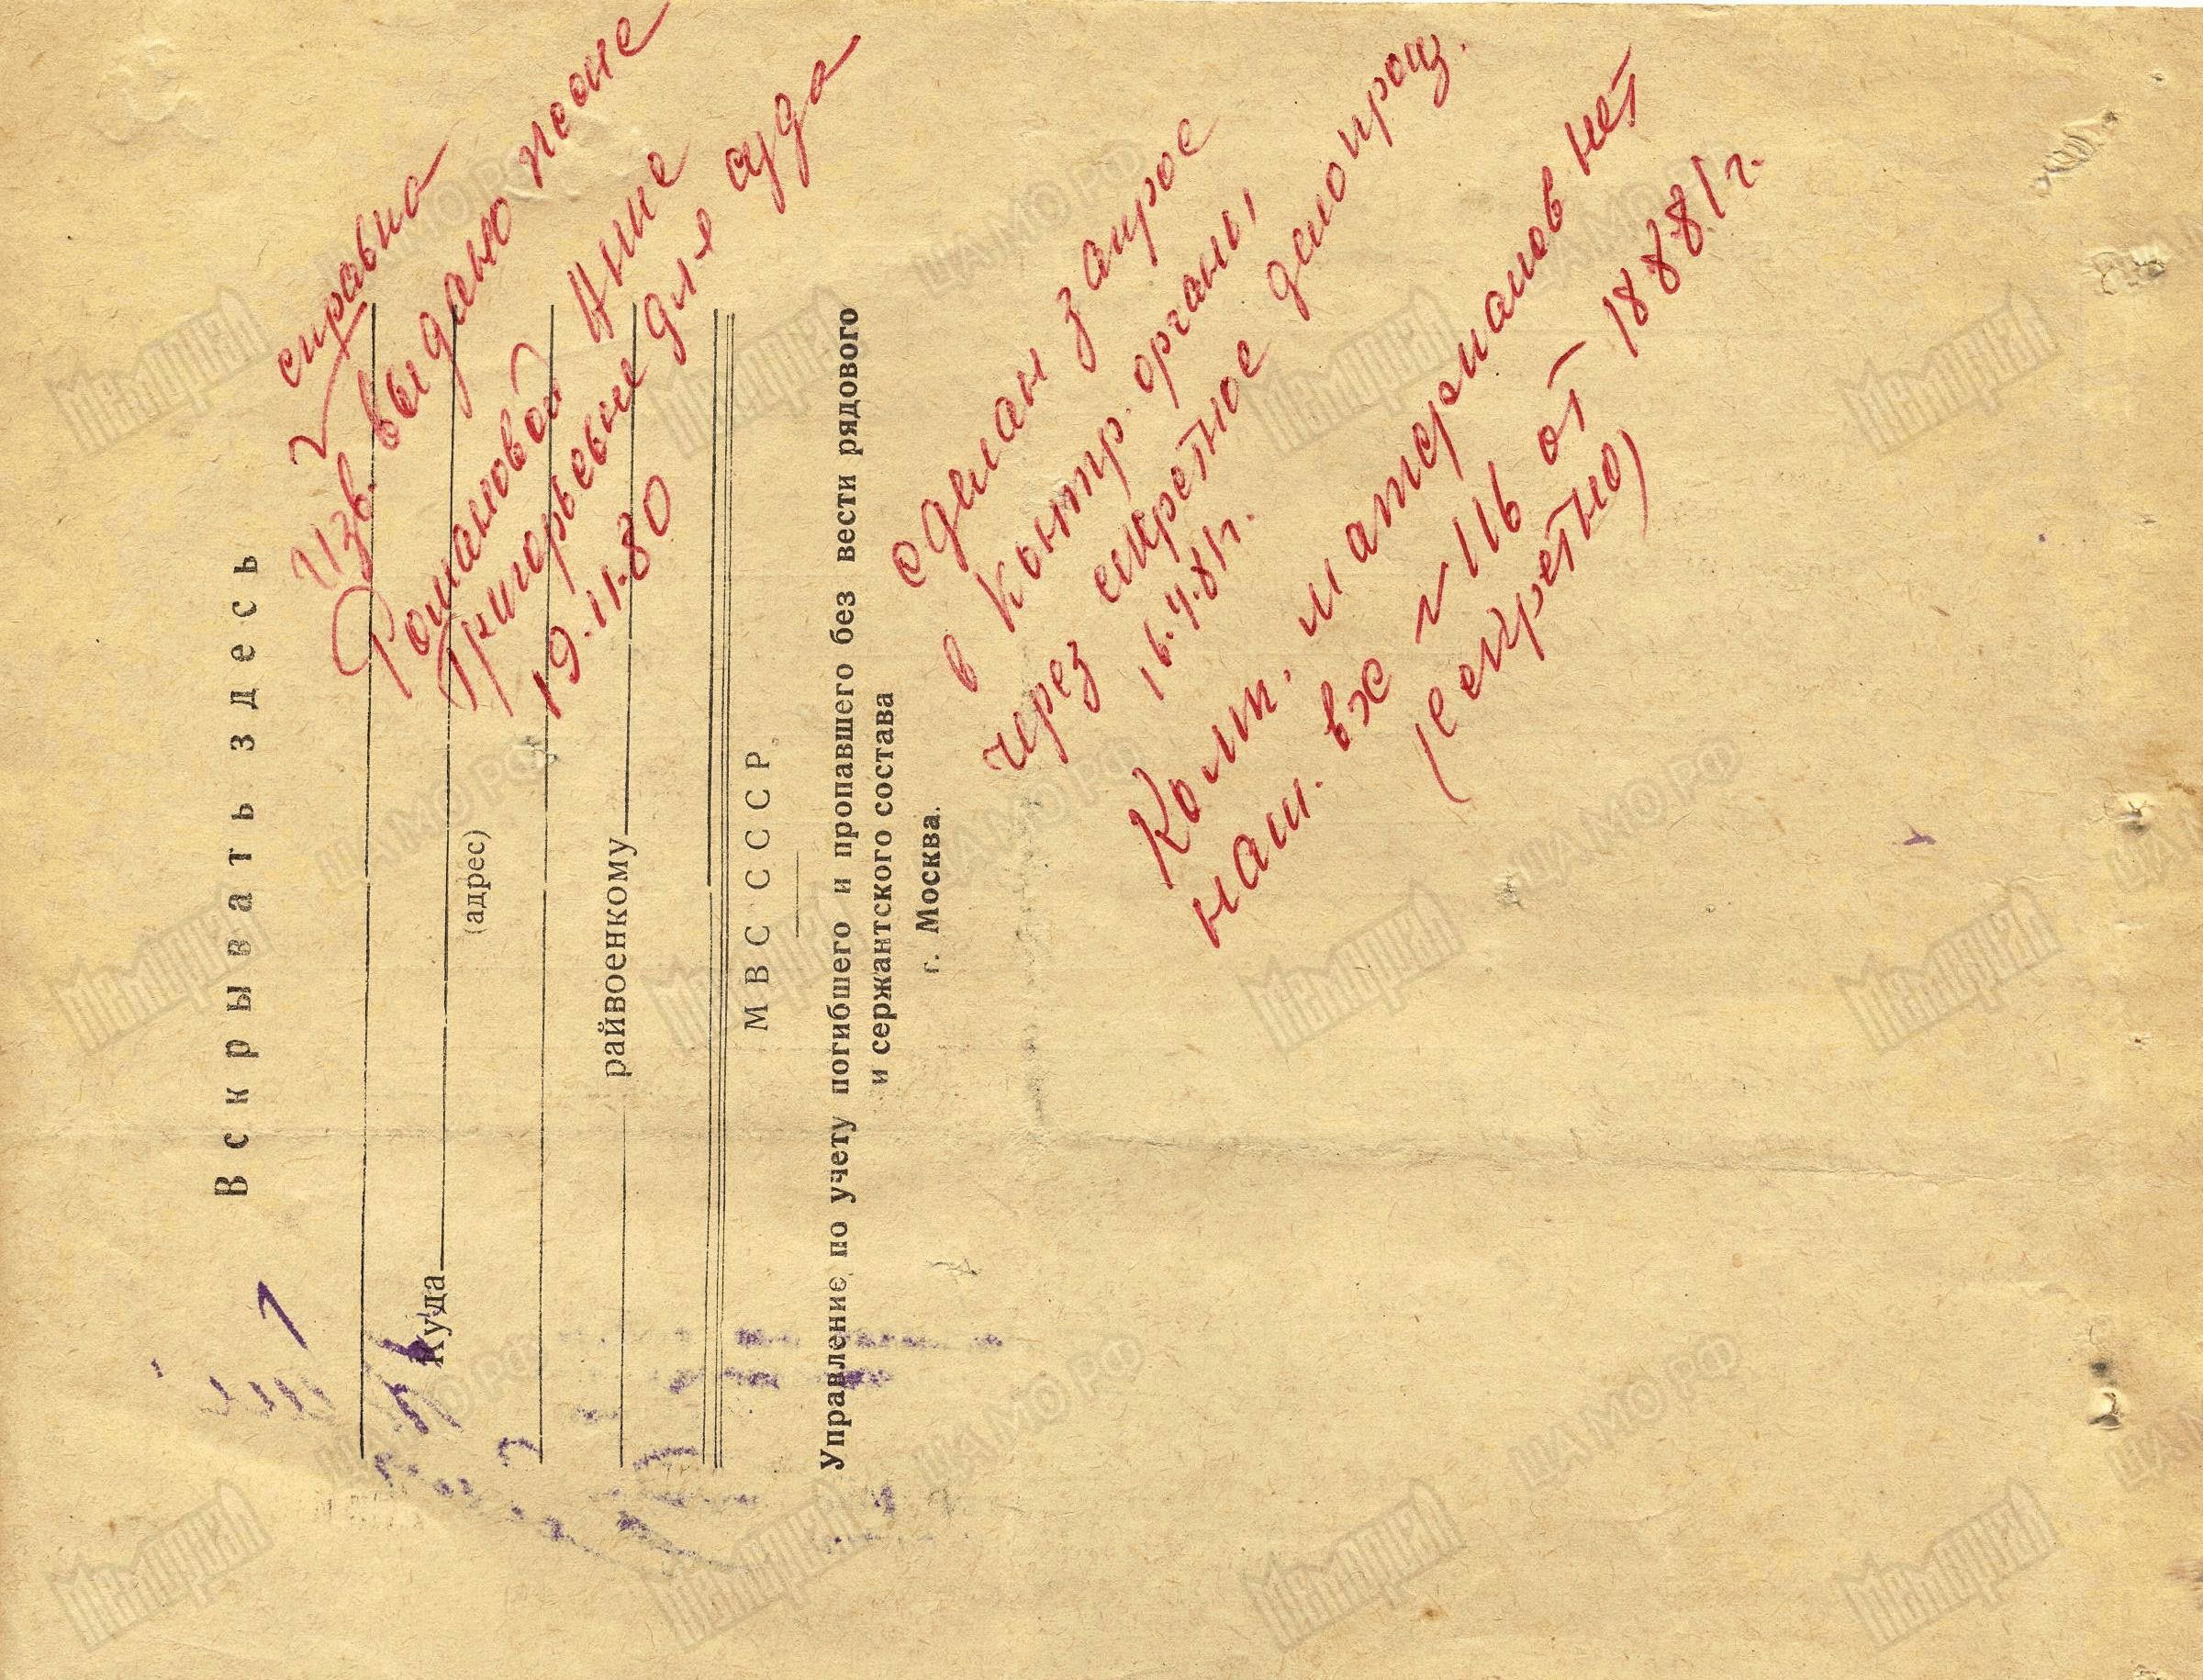 Вскрывать здесь
Куда
(адрес)
райвоенкому
МВС СССР
Управление по учету погибшего и пропавшего без вести рядового
и сержантского состава
г. Москва.
справка
Изв. выдано жене
Романовой Анне
Григорьевне для суда
19.11.80
сделан запрос
в контр. органы,
через секретное делопроиз.
16.4.81г.
Комп. материалов нет
наш. вх № 116 от 18.8.81г.
(секретно)
Мемориал
ЦАМО РФ